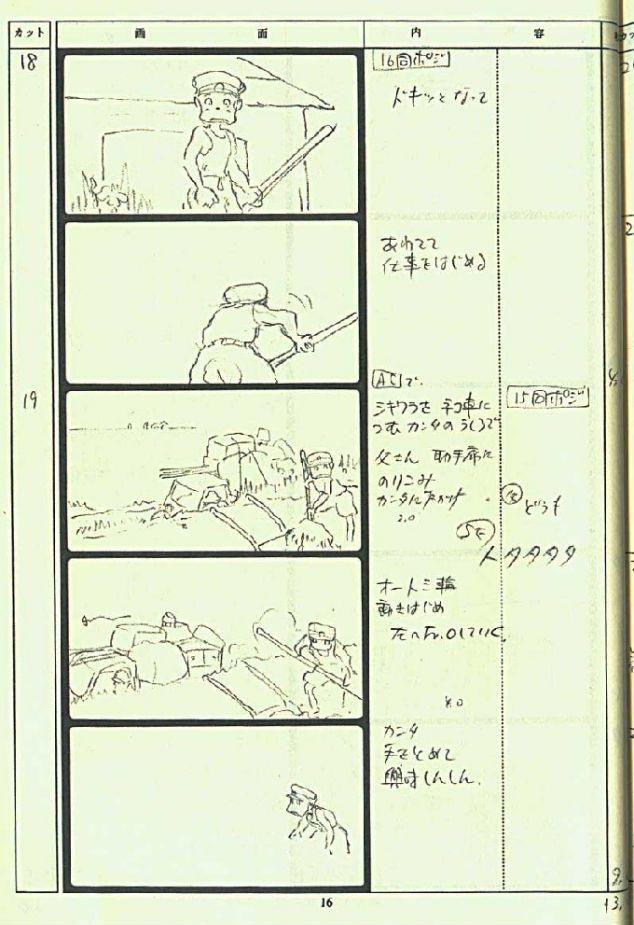 カット 画面 内容
18
16同ポジ
ドキッとなって
あわてて
仕事をはじめる
19
ACで
シキワラを ネコ車に
つむ カンタの うしろで
父さん 助手席に
のりこみ
カンタに
3.0
15同ポジ
父 どうも
SE
タタタタ
オート三輪
動きはじめ
左へFr.OしていK.
4.0
カンタ
手をとめて
興味しんしん.
16